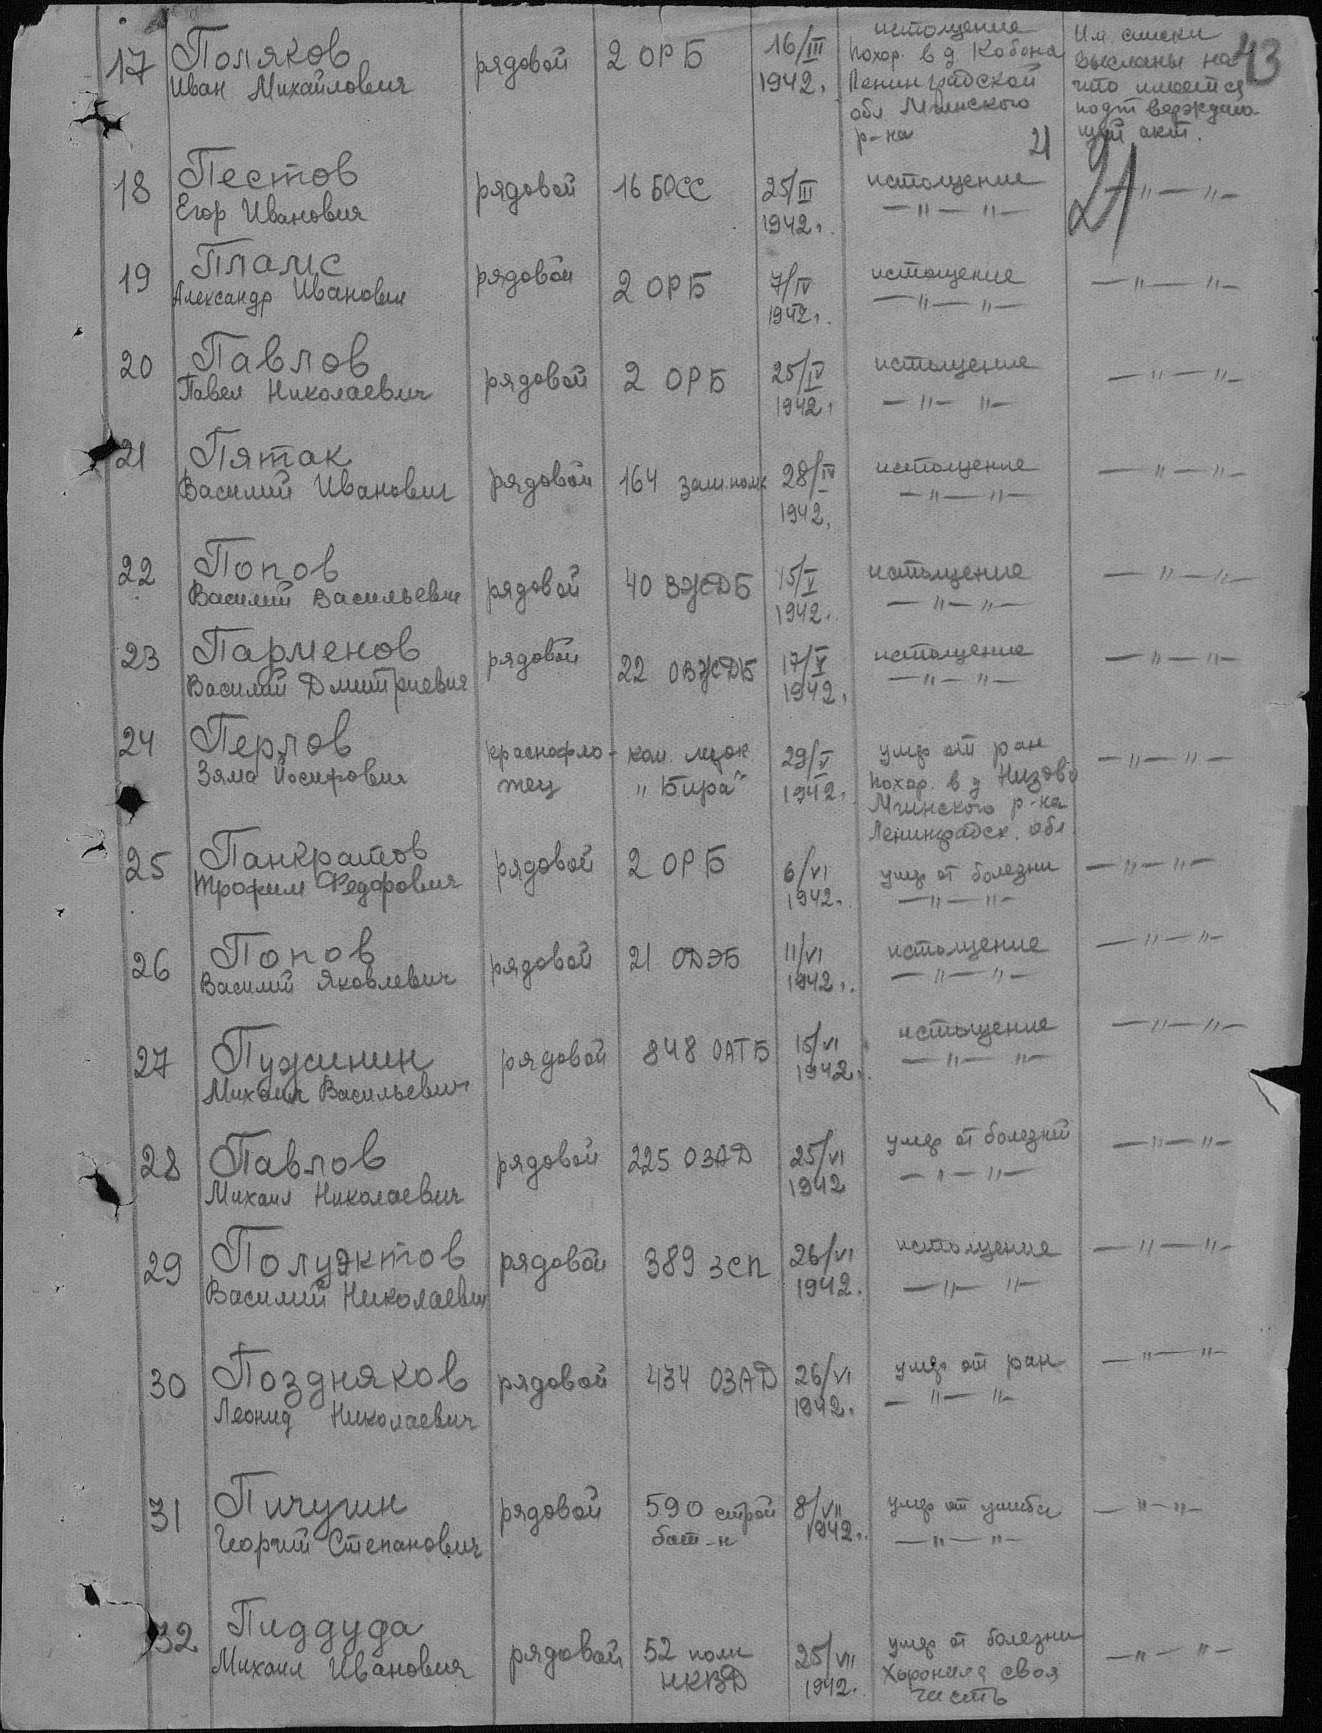 43
17 Поляков Иван Михайлович рядовой 2 ОРБ 16/III 1942. истощение
похор. в д Кобона
Ленинградской
обл Мгинского
р-на
Им. списки
высланы на
что имеется
подтверждаю-
щий акт.
21
21
18 Пестов Егор Иванович рядовой 16 БОСС 25/III 1942. истощение —"—"— —"—"—
19 Александр Иванович рядовой 2 ОРБ 7/IV 1942. истощение —"—"— —"—"—
20 Павлов Павел Николаевич рядовой 2 ОРБ 25/IV 1942. истощение —"—"— —"—"—
21 Пятак Василий Иванович рядовой 164 зап. полк 28/IV 1942. истощение —"—"— —"—"—
22 Попов Василий Васильевич рядовой 40 ВЖДБ 15/V 1942. истощение —"—"— —"—"—
23 Парменов Василий Дмитриевич рядовой 22 ОВЖДБ 17/V 1942. истощение —"—"— —"—"—
24 Перлов Зяма Йосифович краснофло-
тец кан. лодк
"Бира" 29/V 1942. умер от ран
похор. в д Низово
Мгинского р-на
Ленинградск. обл —"—"—
25 Панкратов Трофим Федорович рядовой 2 ОРБ 6/VI 1942. умер от болезни —"—"— —"—"—
26 Попов Василий Яковлевич рядовой 21 ОДЭБ 11/VI 1942. истощение —"—"— —"—"—
27 Пужинин Михаил Васильевич рядовой 848 ОАТБ 15/VI 1942. истощение —"—"— —"—"—
28 Павлов Михаил Николаевич рядовой 225 ОЗАД 25/VI 1942 умер от болезни —"—"— —"—"—
29 Полуэктов Василий Николаевич рядовой 389 зсп 26/VI 1942. истощение —"—"— —"—"—
30 Поздняков Леонид Николаевич рядовой 434 ОЗАД 26/VI 1942. умер от ран —"—"— —"—"—
31 Пичугин Георгий Степанович рядовой 590 строй
бат-н 8/VII 1942. умер от ушиба —"—"— —"—"—
32 Пиддуда Михаил Иванович рядовой 52 полк
НКВД 25/VII 1942. умер от болезни
Хоронила своя
часть —"—"—